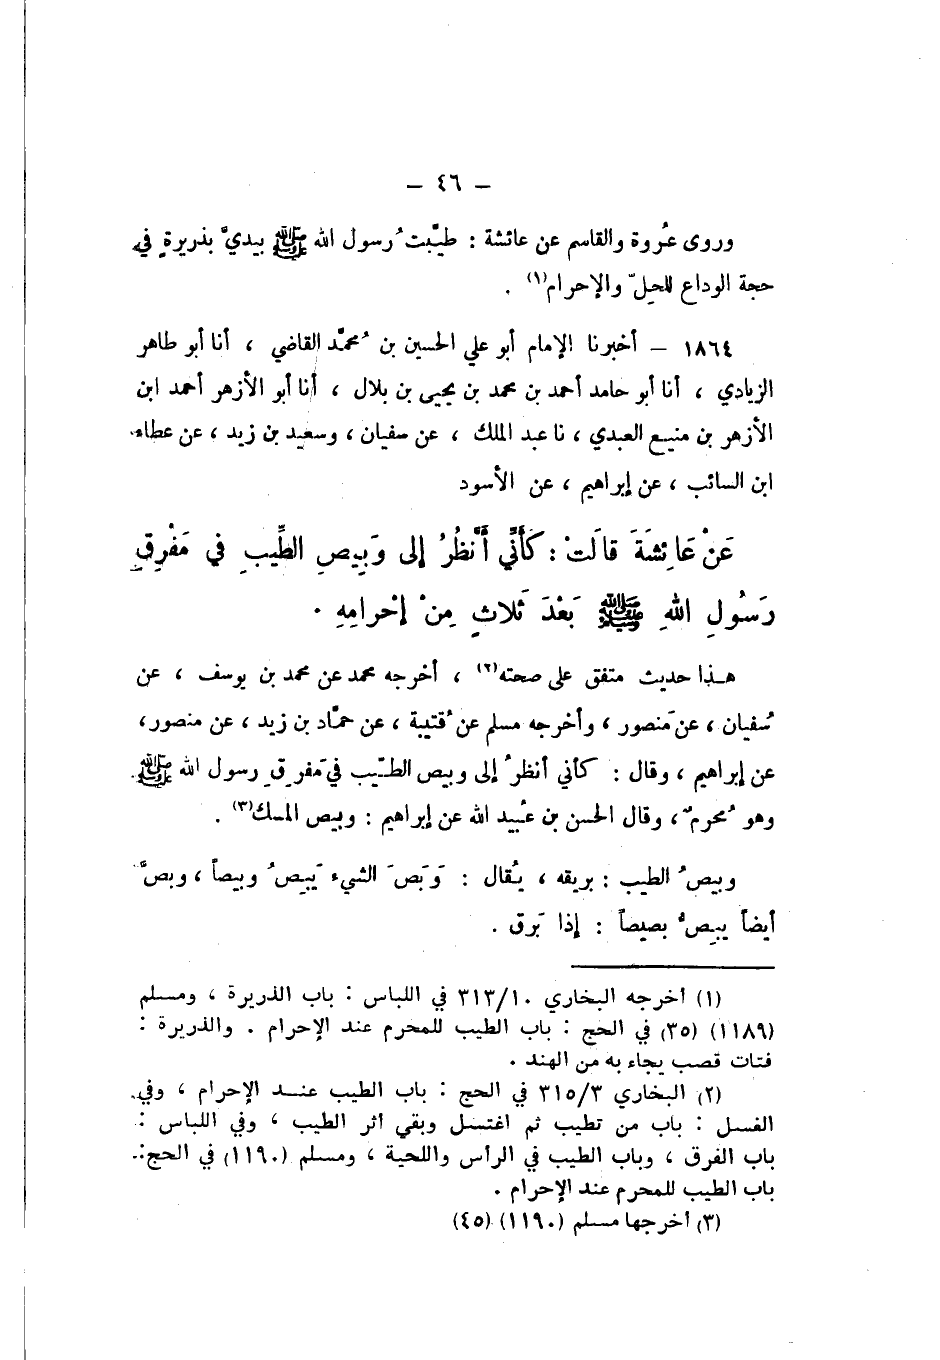 – ٤٦ –
وروى عُروة والقاسم عن عائشة : طيّبتُ رسول الله ﷺ بيديَّ بذريرةٍ في
حجة الوداع للحِلّ والإحرام(١) .
١٨٦٤ – أخبرنا الإمام أبو علي الحسين بن مُحمّد القاضي ، أنا أبو طاهر
الزيادي ، أنا أبو حامد أحمد بن محمد بن يحيى بن بلال ، أنا أبو الأزهر أحمد ابن
الأزهر بن منيع العبدي ، نا عبد الملك ، عن سفيان ، وسعيد بن زيد ، عن عطاء
ابن السائب ، عن إبراهيم ، عن الأسود
عَنْ عَائِشَةَ قالَتْ : كَأَنِّي أَنْظُرُ إلى وَبِيصِ الطِّيبِ في مَفْرِقِ
رَسُولِ اللهِ ﷺ بَعْدَ ثَلاثٍ مِنْ إحْرامِهِ .
هـذا حديث متفق على صحته(٢) ، أخرجه محمد عن محمد بن يوسف ، عن
سُفيان ، عن مَنصور ، وأخرجه مسلم عن قُتيبة ، عن حمّاد بن زيد ، عن منصور ،
عن إبراهيم ، وقال : كأني أنظرُ إلى وبيص الطـّيب في مَفرِقِ رسول الله ﷺ
وهو مُحرمٌ ، وقال الحسن بن عُبيد الله عن إبراهيم : وبيص المسك(٣) .
وبيصُ الطيب : بريقه ، يُقال : وَبَصَ الشيء يَبِصُ وبيصاً ، وبصَّ
أيضاً يبِصُّ بصيصاً : إذا بَرق .
(١) أخرجه البخاري ٣١٣/١٠ في اللباس : باب الذريرة ، ومسلم
(١١٨٩) (٣٥) في الحج : باب الطيب للمحرم عند الإحرام . والذريرة :
فتات قصب يجاء به من الهند .
(٢) البخاري ٣١٥/٣ في الحج : باب الطيب عنـد الإحرام ، وفي
الغسل : باب من تطيب ثم اغتسل وبقي أثر الطيب ، وفي اللباس :
باب الفرق ، وباب الطيب في الرأس واللحية ، ومسلم (١١٩٠) في الحج :
باب الطيب للمحرم عند الإحرام .
(٣) أخرجها مسلم (١١٩٠) (٤٥)